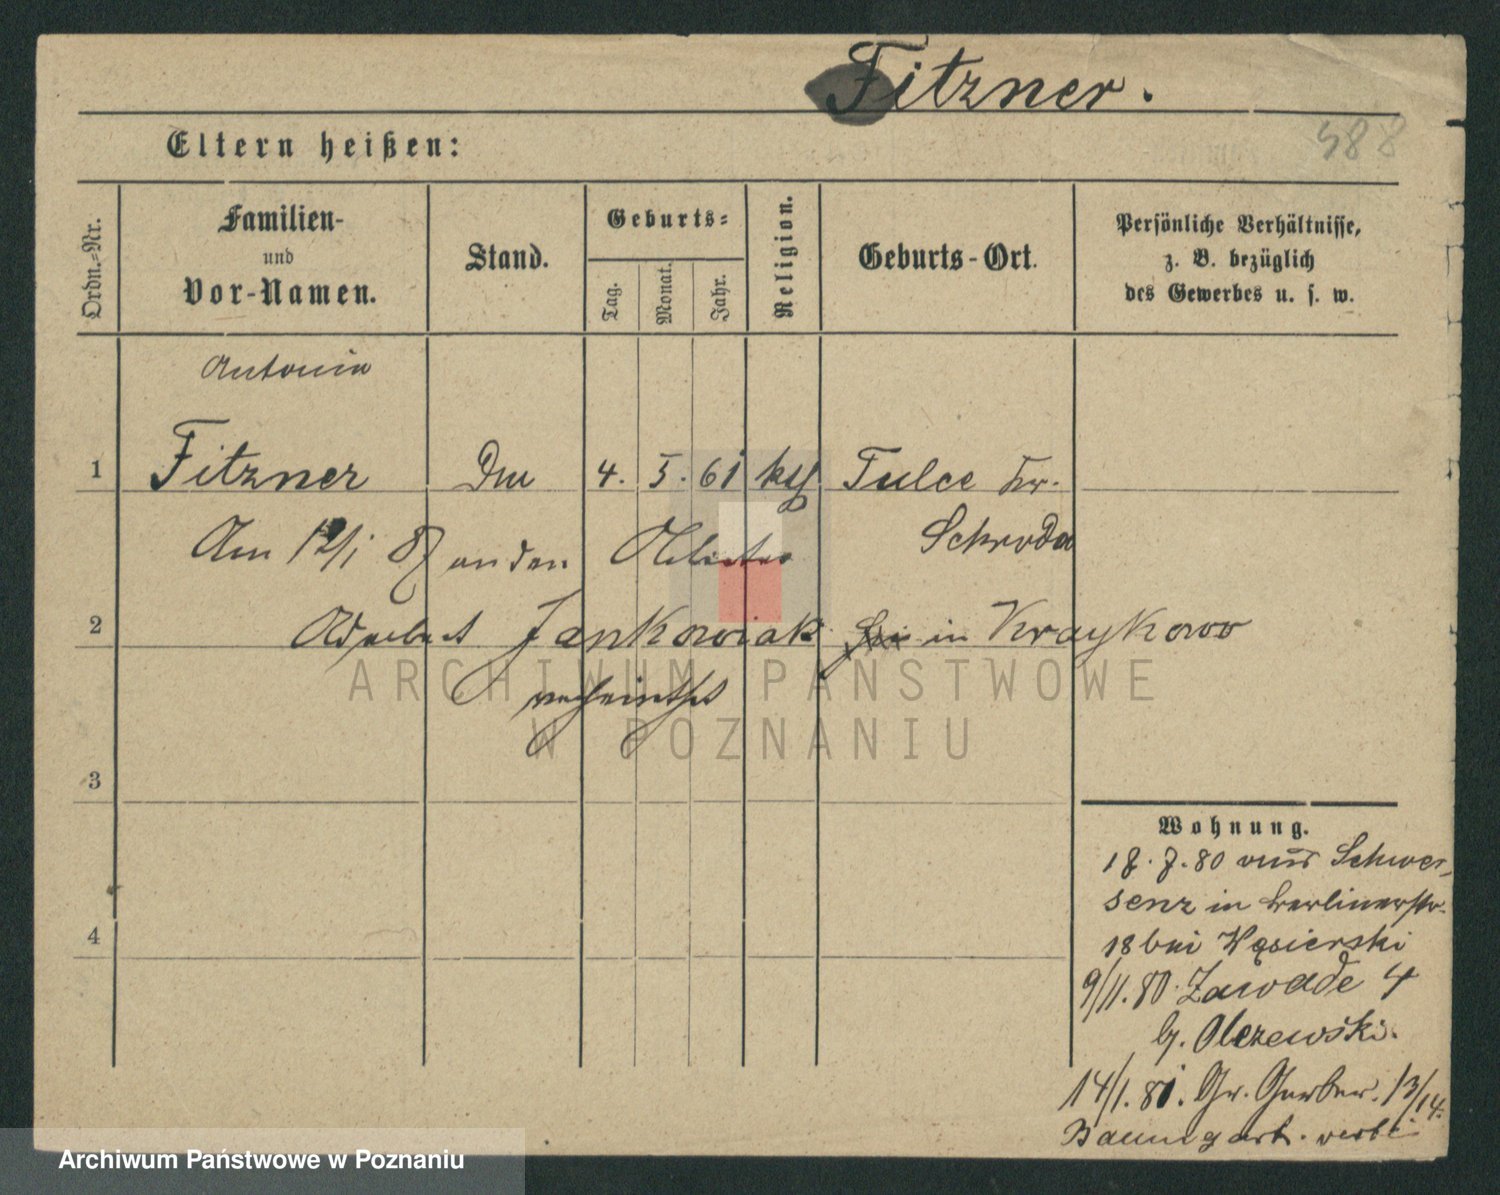 Fitzner.
488
Eltern heißen:
Ordn.-Nr.
Familien-
und
Vor-Namen.
Stand.
Geburts-
Tag.
Monat.
Jahr.
Religion.
Geburts-Ort.
Persönliche Verhältnisse,
z. B. bezüglich
des Gewerbes u. s. w.
Antonia
1 Fitzner 4. 5. 61 kth Tulce Kr.
Schroda
Am 12/1 87 an den
2 Adalbert Jankowiak in Kraykowo
verheirathet
ARCHIWUM PAŃSTWOWE
W POZNANIU
3
4
Wohnung.
17.7.80 aus Schwer-
senz in Berlinerstr.
18 bei Węsierski
9/11.80. Zawade 4
b. Olszewski.
14/1.81. Gr. Gerber. 13/14.
Baumgart.
Archiwum Państwowe w Poznaniu